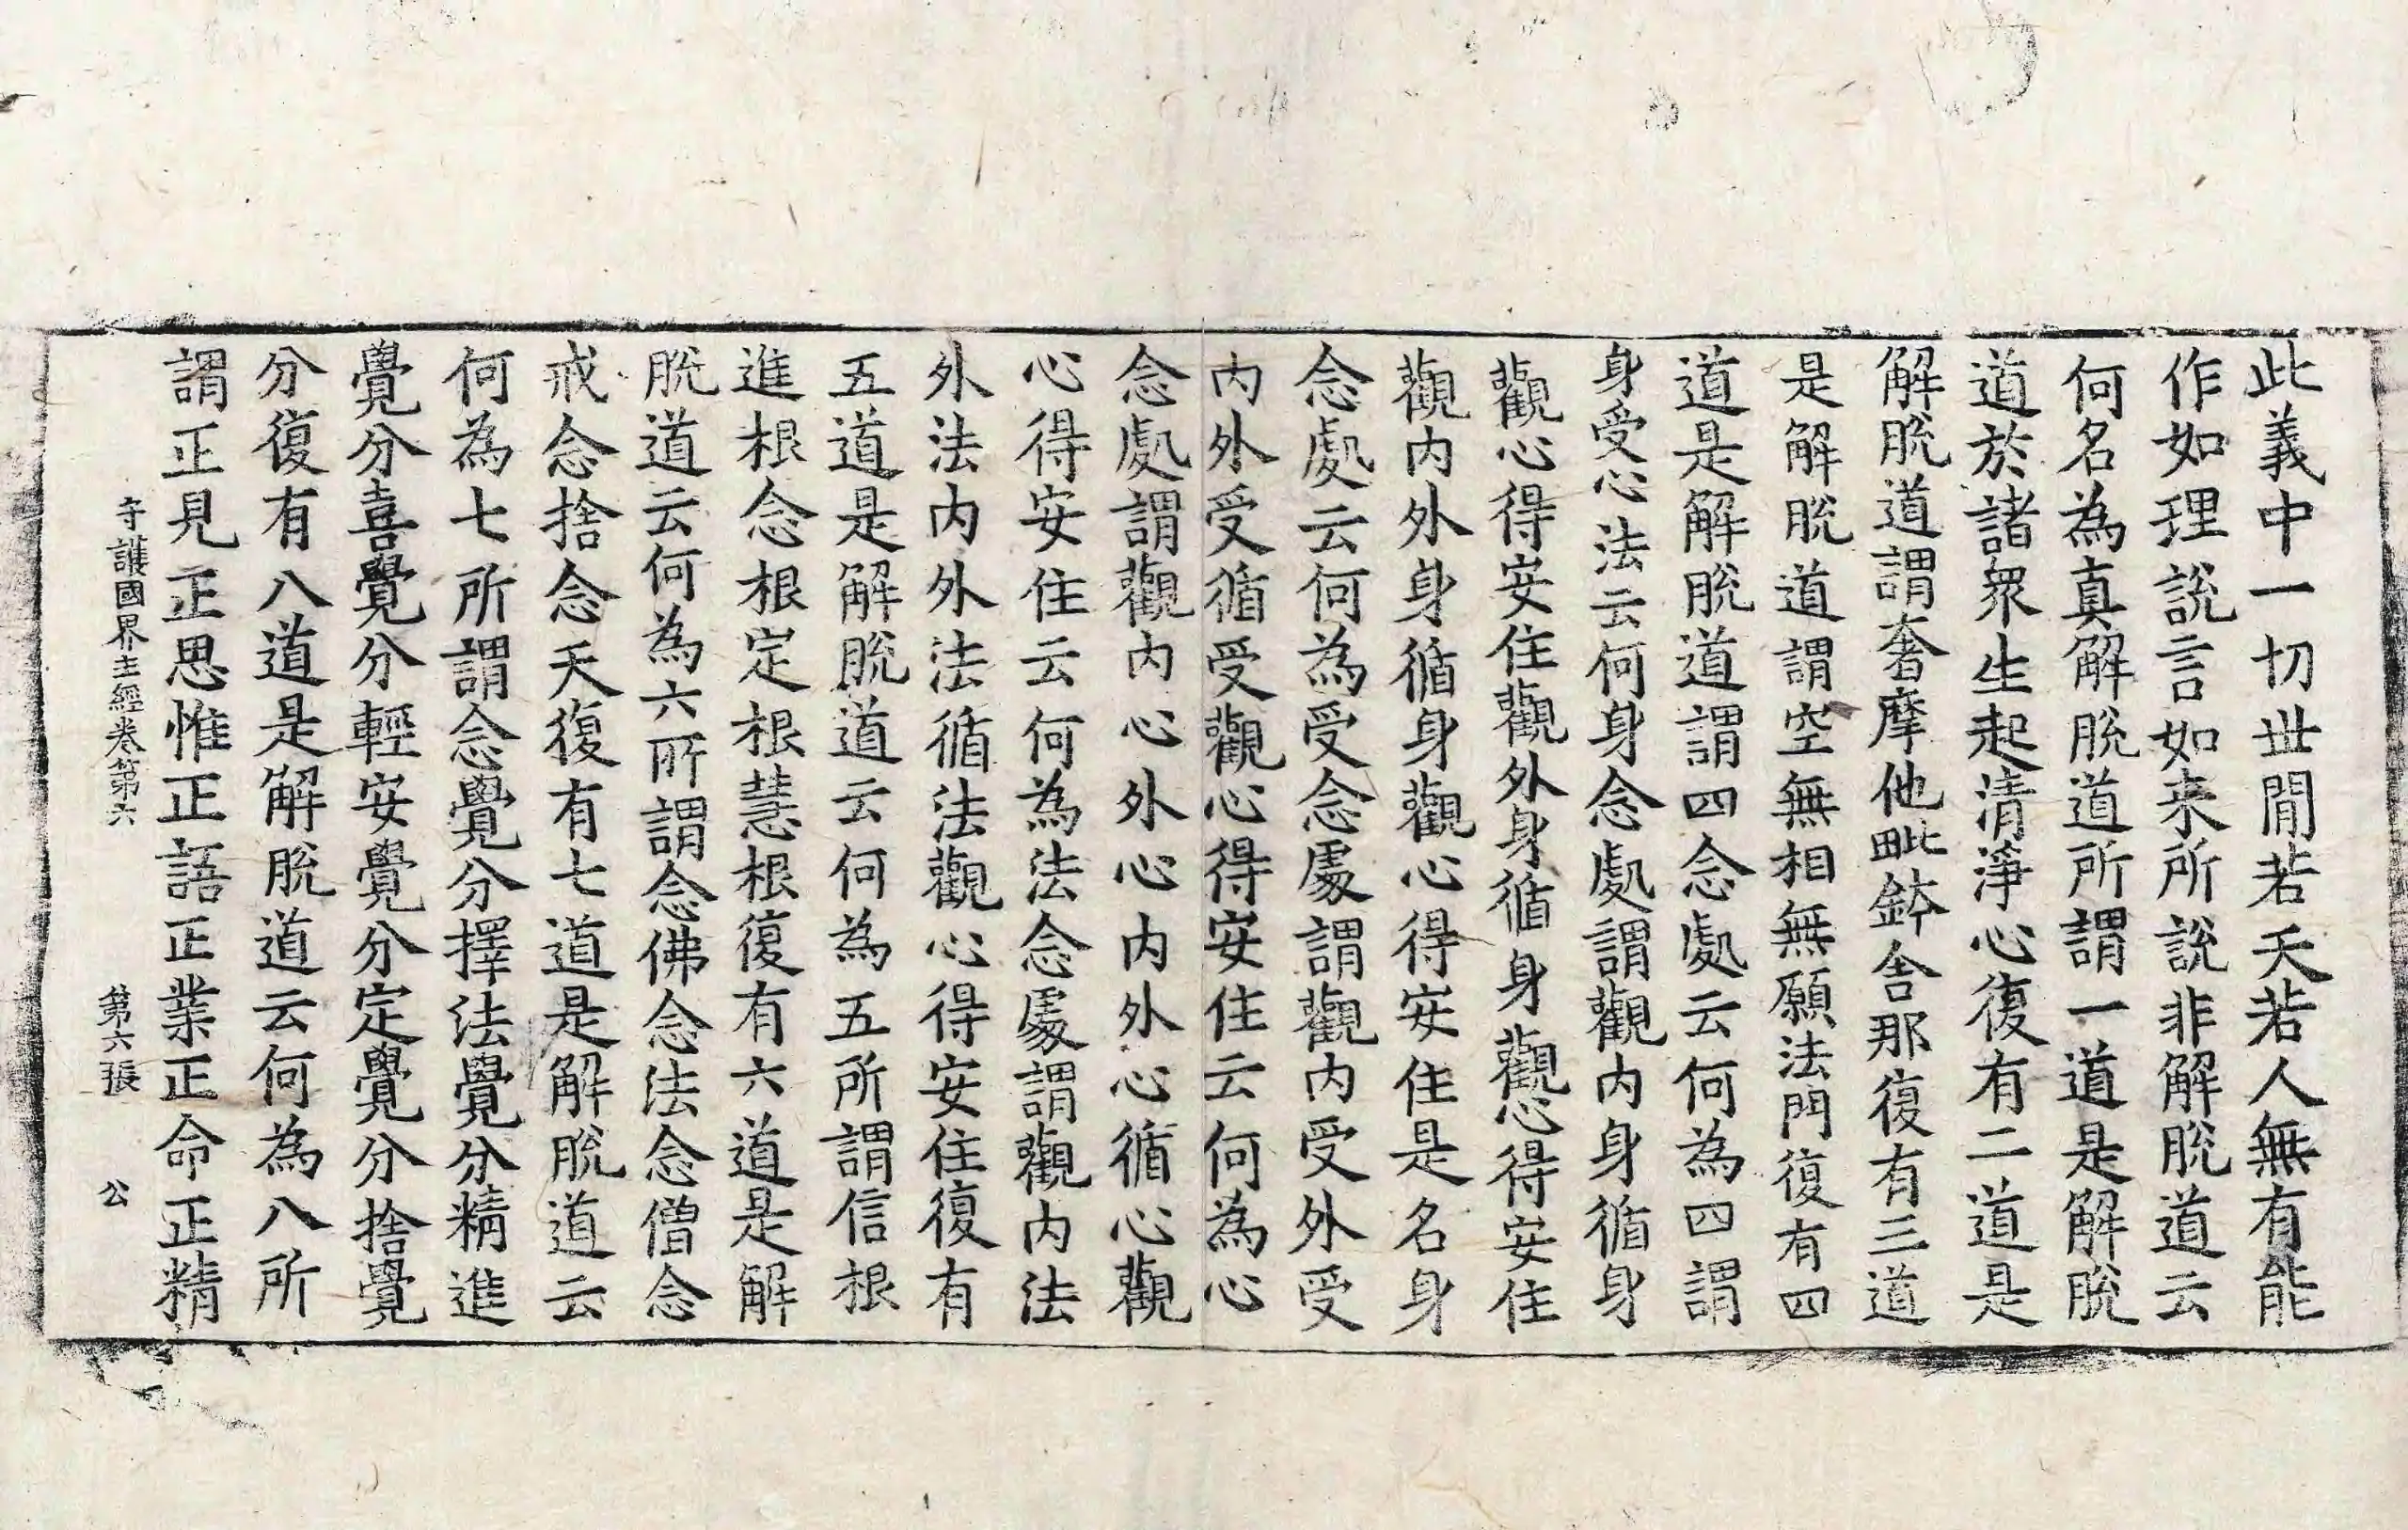 此義中一切世間若天若人無有能
作如理說言如来所說非解脫道云
何名為真解脫道所謂一道是解脫
道於諸衆生起清淨心復有二道是
解脫道謂奢摩他毗鉢舍那復有三道
是解脫道謂空無相無願法門復有四
道是解脫道謂四念處云何為四謂
身受心法云何身念處謂觀内身循身
觀心得安住觀外身循身觀心得安住
觀内外身循身觀心得安住是名身
念處云何為受念處謂觀内受外受
内外受循受觀心得安住云何為心
念處謂觀内心外心内外心循心觀
心得安住云何為法念處謂觀内法
外法内外法循法觀心得安住復有
五道是解脫道云何為五所謂信根
進根念根定根慧根復有六道是解
脫道云何為六所謂念佛念法念僧念
戒念捨念天復有七道是解脫道云
何為七所謂念覺分擇法覺分精進
覺分喜覺分輕安覺分定覺分捨覺
分復有八道是解脫道云何為八所
謂正見正思惟正語正業正命正精
守護國界主經卷第六 第六張 公